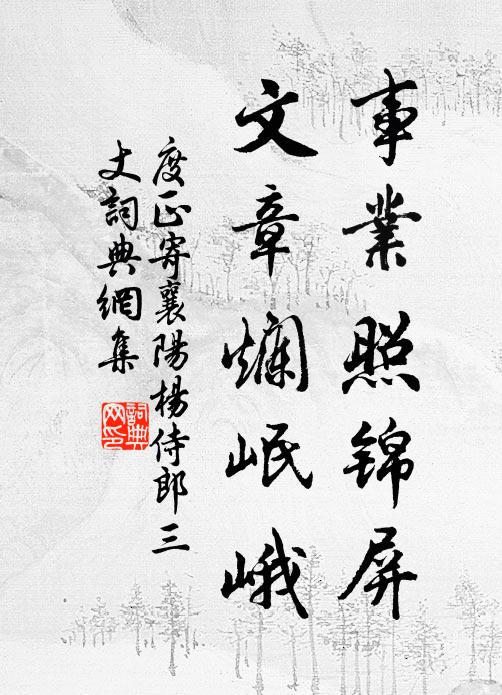 事業照锦屏
文章爛岷峨
度正寄襄陽楊侍郎三
丈詞典網集
詞典网印